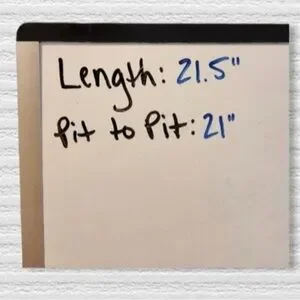 Length: 21.5"
Pit to Pit: 21"